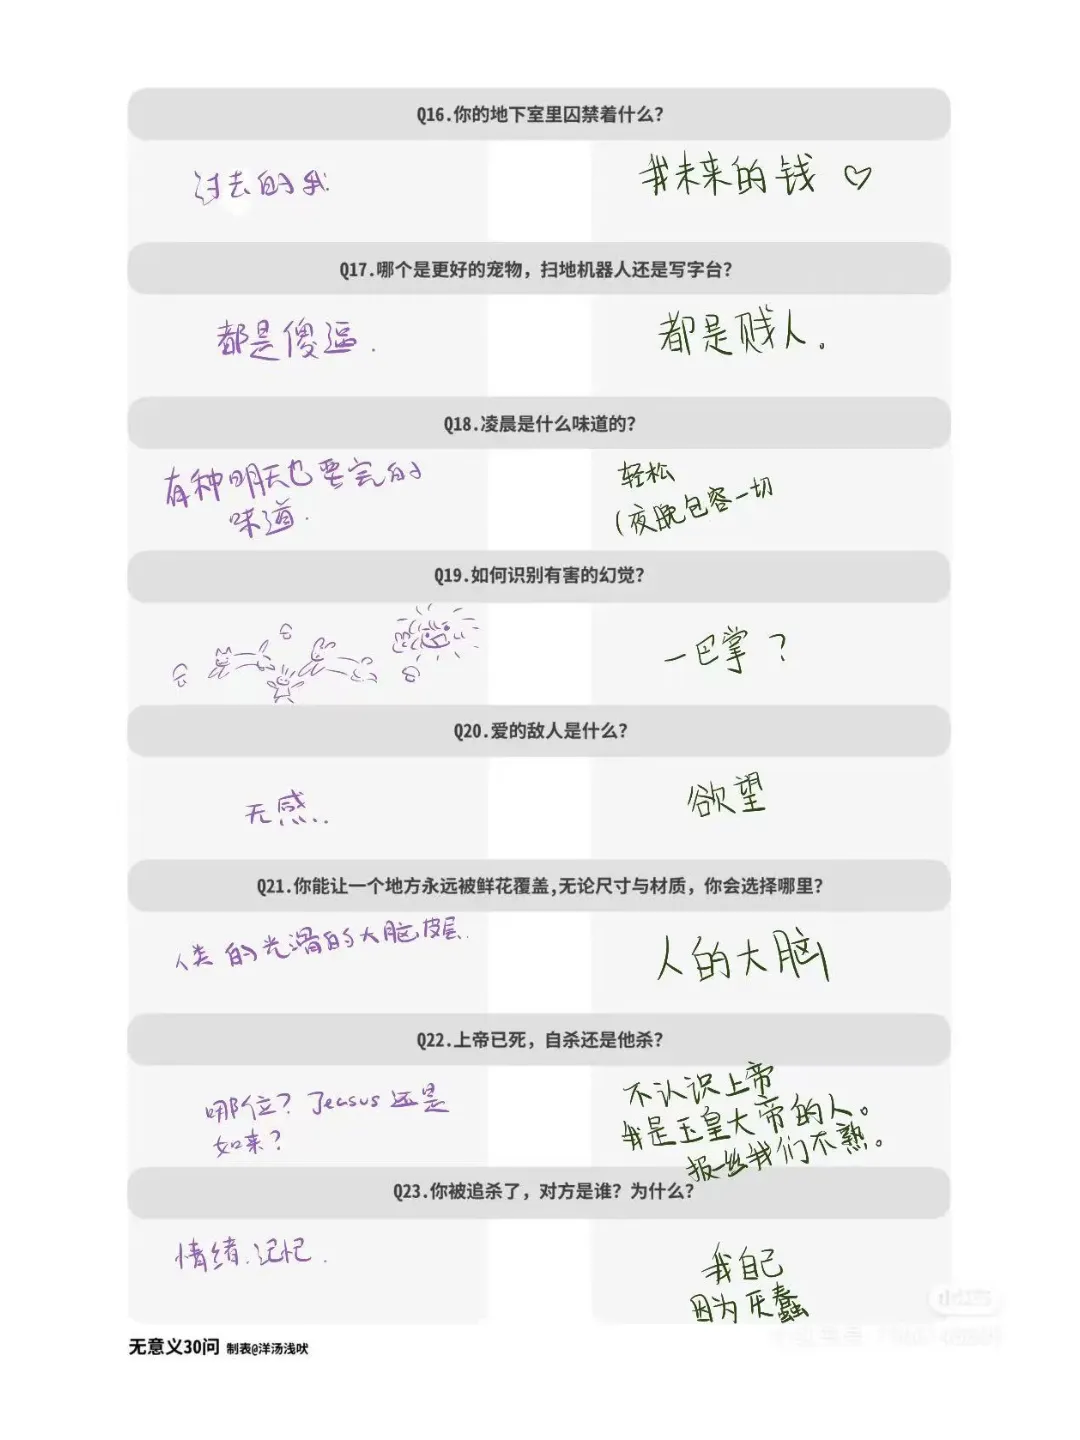 Q16.你的地下室里囚禁着什么？
过去的我.
我未来的钱 ♡
Q17.哪个是更好的宠物，扫地机器人还是写字台？
都是傻逼.
都是贱人。
Q18.凌晨是什么味道的？
有种明天也要完的
味道.
轻松
(夜晚包容一切
Q19.如何识别有害的幻觉？
一巴掌？
Q20.爱的敌人是什么？
无感..
欲望
Q21.你能让一个地方永远被鲜花覆盖,无论尺寸与材质，你会选择哪里？
人类的光滑的大脑皮层.
人的大脑
Q22.上帝已死，自杀还是他杀？
哪位？Jeasus还是
如来？
不认识上帝
我是玉皇大帝的人。
报一丝我们不熟。
Q23.你被追杀了，对方是谁？为什么？
情绪.记忆.
我自己
因为厌蠢
无意义30问 制表@洋汤浅吠